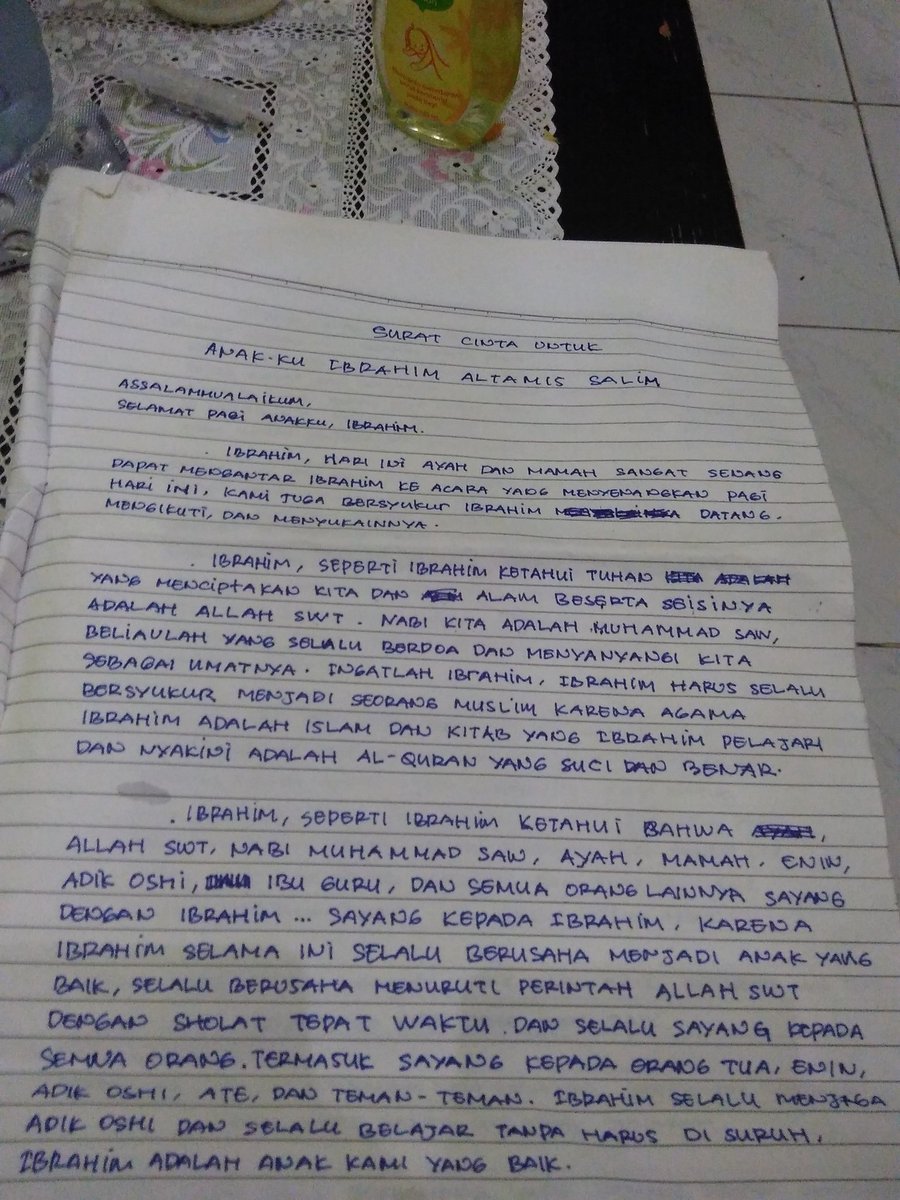 SURAT CINTA UNTUK
ANAK-KU IBRAHIM ALTAMIS SALIM
ASSALAMMUALAIKUM,
SELAMAT PAGI ANAKKU, IBRAHIM.
. IBRAHIM, HARI INI AYAH DAN MAMAH SANGAT SENANG
DAPAT MENGANTAR IBRAHIM KE ACARA YANG MENYENANGKAN PAGI
HARI INI, KAMI JUGA BERSYUKUR IBRAHIM DATANG.
MENGIKUTI, DAN MENYUKAINNYA.
. IBRAHIM, SEPERTI IBRAHIM KETAHUI TUHAN KITA ADALAH
YANG MENCIPTAKAN KITA DAN ALAM BESERTA SEISINYA
ADALAH ALLAH SWT. NABI KITA ADALAH MUHAMMAD SAW,
BELIAULAH YANG SELALU BERDOA DAN MENYANYANGI KITA
SEBAGAI UMATNYA. INGATLAH IBRAHIM, IBRAHIM HARUS SELALU
BERSYUKUR MENJADI SEORANG MUSLIM KARENA AGAMA
IBRAHIM ADALAH ISLAM DAN KITAB YANG IBRAHIM PELAJARI
DAN NYAKINI ADALAH AL-QURAN YANG SUCI DAN BENAR.
. IBRAHIM, SEPERTI IBRAHIM KETAHUI BAHWA AYAH,
ALLAH SWT, NABI MUHAMMAD SAW, AYAH, MAMAH, ENIN,
ADIK OSHI, IBU GURU, DAN SEMUA ORANG LAINNYA SAYANG
DENGAN IBRAHIM... SAYANG KEPADA IBRAHIM, KARENA
IBRAHIM SELAMA INI SELALU BERUSAHA MENJADI ANAK YANG
BAIK, SELALU BERUSAHA MENURUTI PERINTAH ALLAH SWT
DENGAN SHOLAT TEPAT WAKTU. DAN SELALU SAYANG KEPADA
SEMUA ORANG. TERMASUK SAYANG KEPADA ORANG TUA, ENIN,
ADIK OSHI, ATE, DAN TEMAN-TEMAN. IBRAHIM SELALU MENJAGA
ADIK OSHI DAN SELALU BELAJAR TANPA HARUS DI SURUH.
IBRAHIM ADALAH ANAK KAMI YANG BAIK.